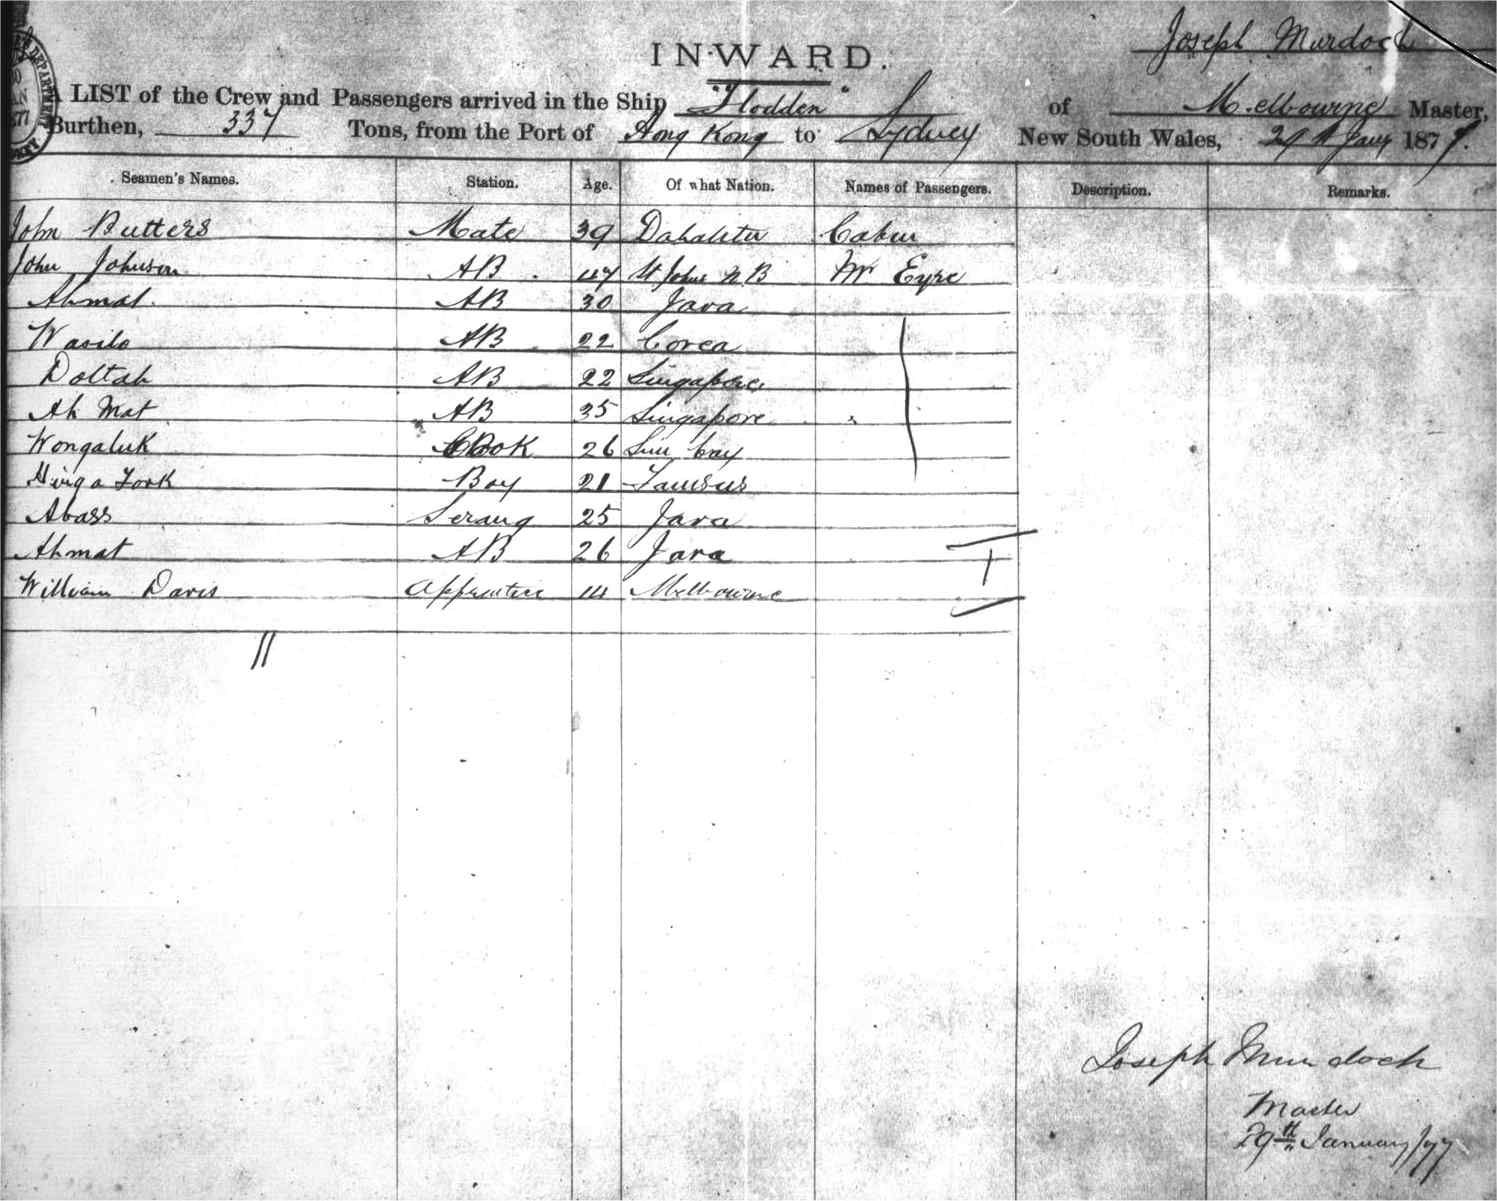 Joseph Murdoch
INWARD.
A LIST of the Crew and Passengers arrived in the Ship "Flodden" of Melbourne Master,
Burthen, 337 Tons, from the Port of Hong Kong to Sydney New South Wales, 29th Jany 1877.
Seamen's Names. Station. Age. Of what Nation. Names of Passengers. Description. Remarks.
John Butters Mate 39 Cabin
John Johnson AB 47 St Johns N B Mr Eyre
Ahmat AB 30 Java
Wasilo AB 22 Corea
Doltah AB 22 Singapore
Ah Mat AB 35 Singapore
Wongaluk Cook 26
York Boy 21
Abass Serang 25 Java
Ahmat AB 26 Java
William Davis Apprentice 14 Melbourne
11
1
Joseph Murdoch
Master
29th January /77